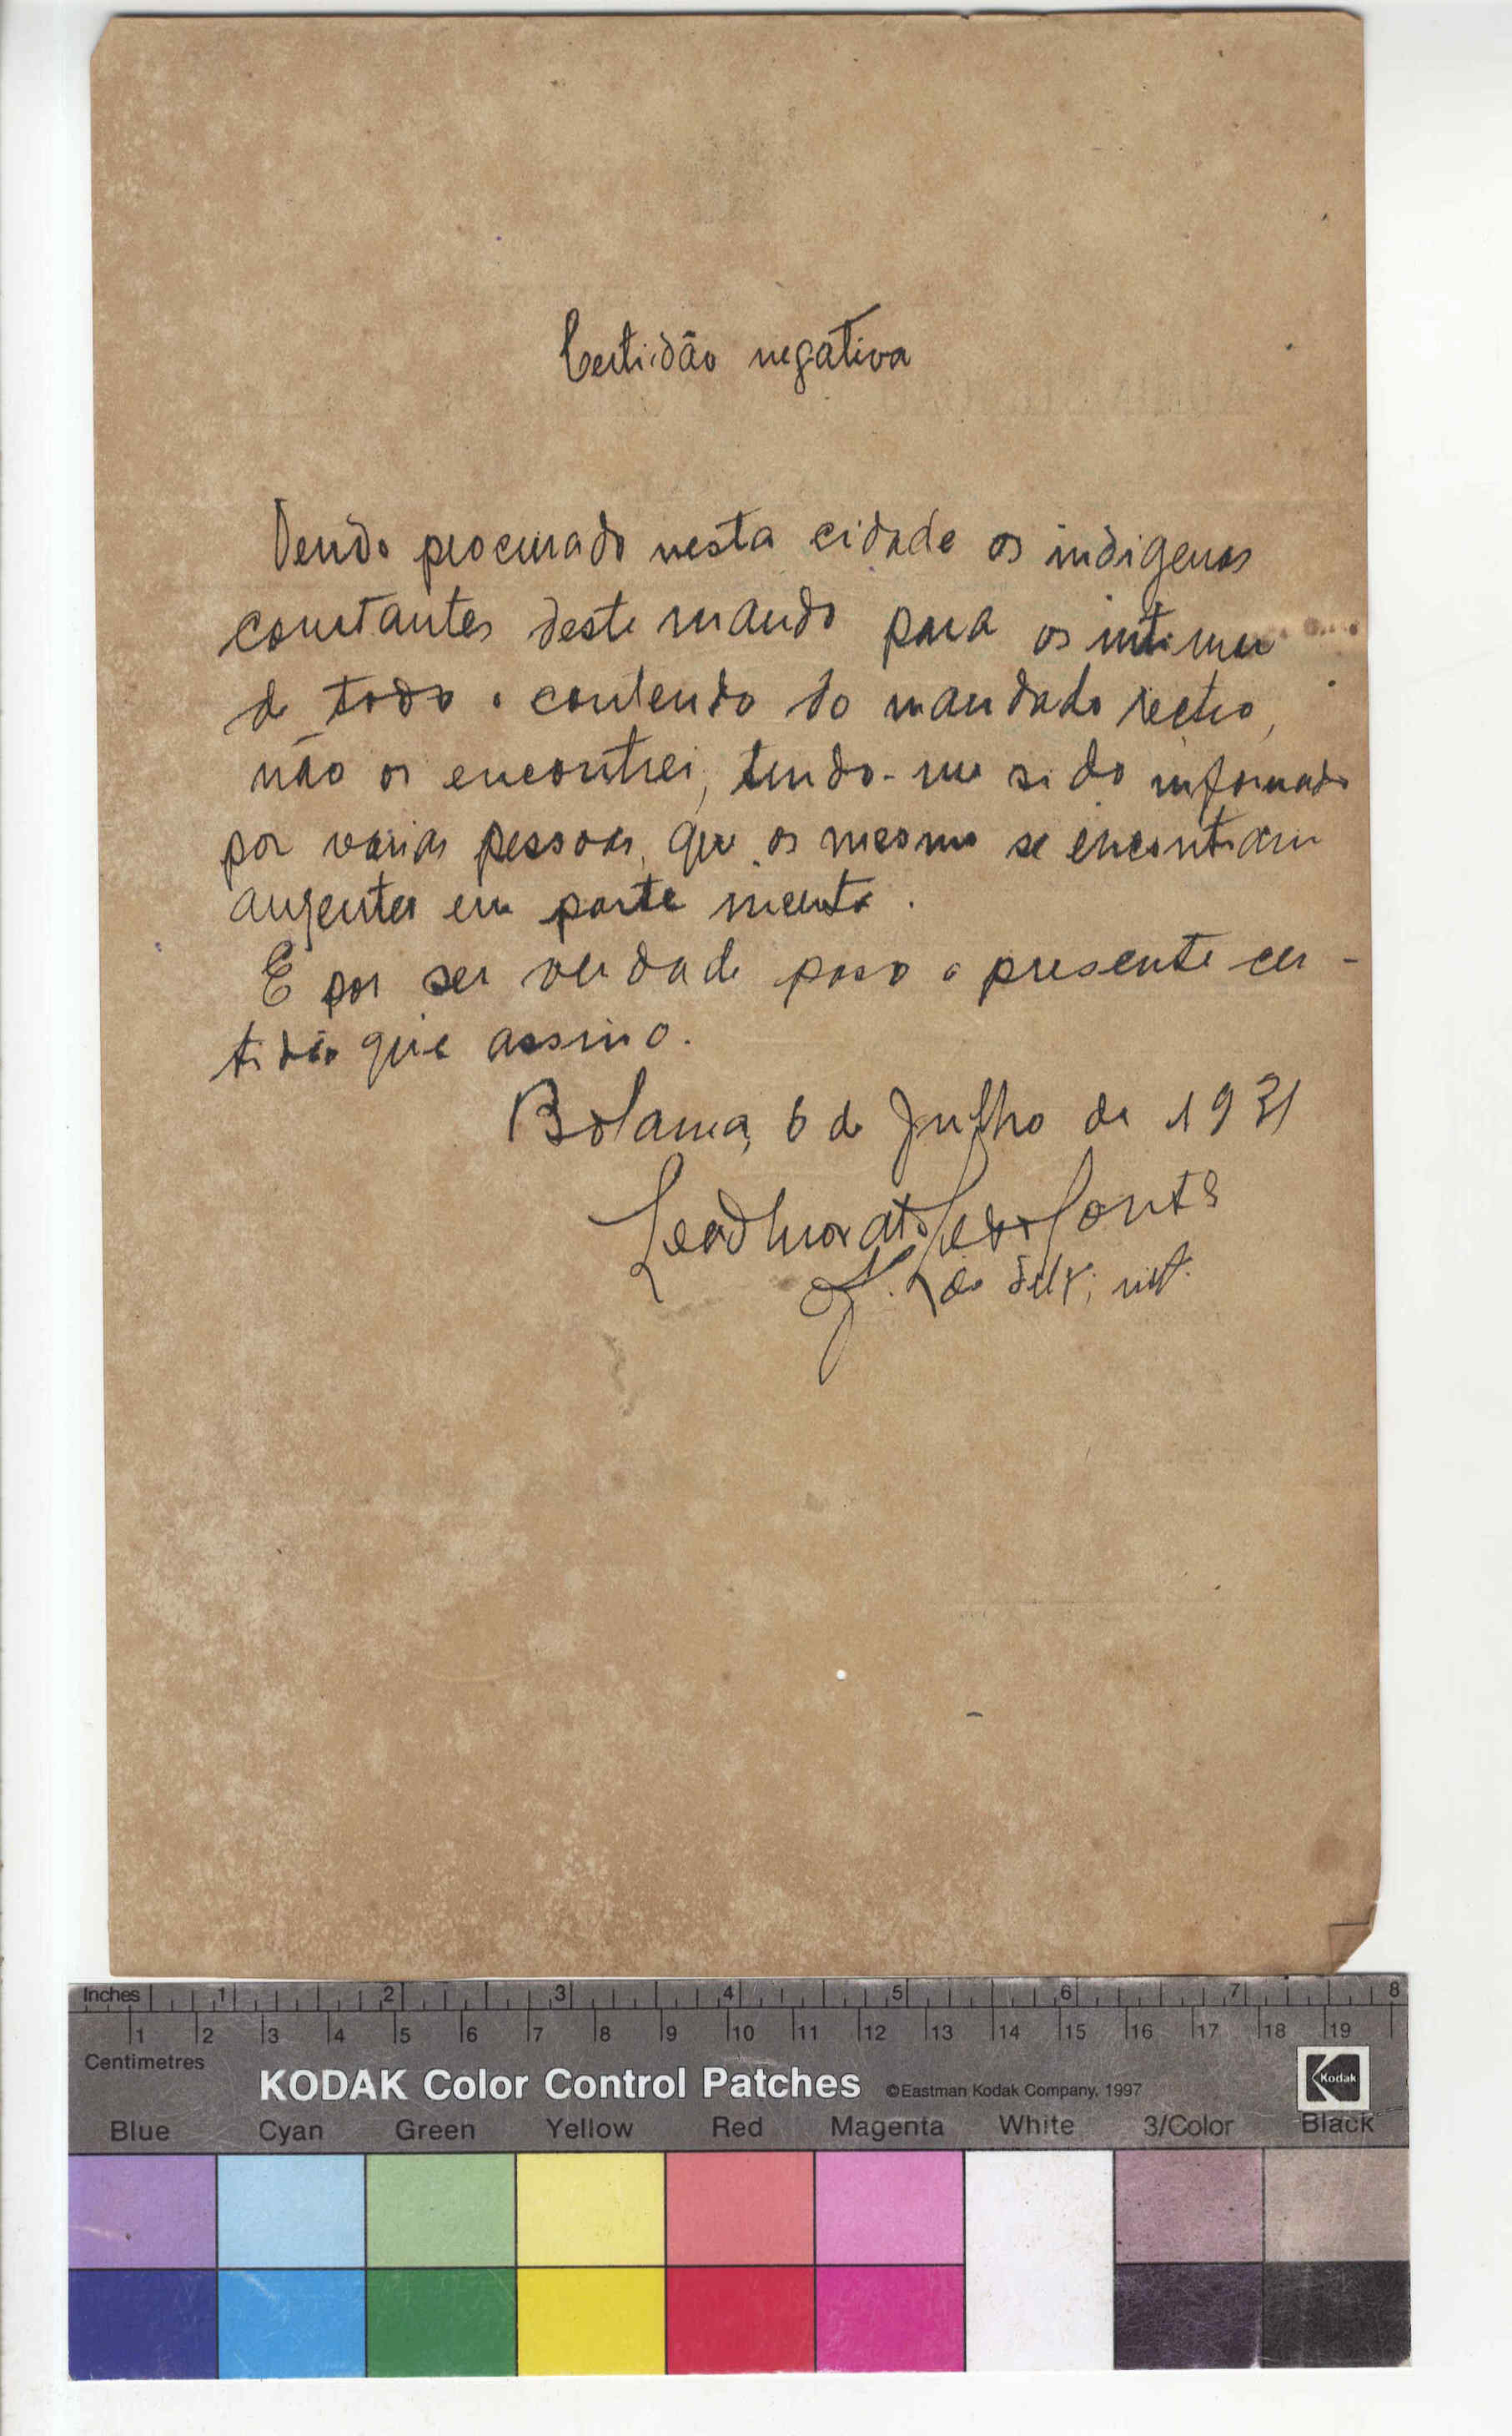 Certidão negativa
Tendo procurado nesta cidade os indigenas
constantes deste mando para os intimar
de todo o contendo do mandado retro,
não os encontrei, tendo-me sido informado
por varias pessoas, que os mesmo se encontram
auzentes em parte incerta.
E por ser verdade passo a presente cer-
tidão que assino.
Bolama, 6 de Julho de 1931
Inches 1 2 3 4 5 6 7 8
1 2 3 4 5 6 7 8 9 10 11 12 13 14 15 16 17 18 19
Centimetres
KODAK Color Control Patches ©Eastman Kodak Company, 1997 Kodak
Blue Cyan Green Yellow Red Magenta White 3/Color Black